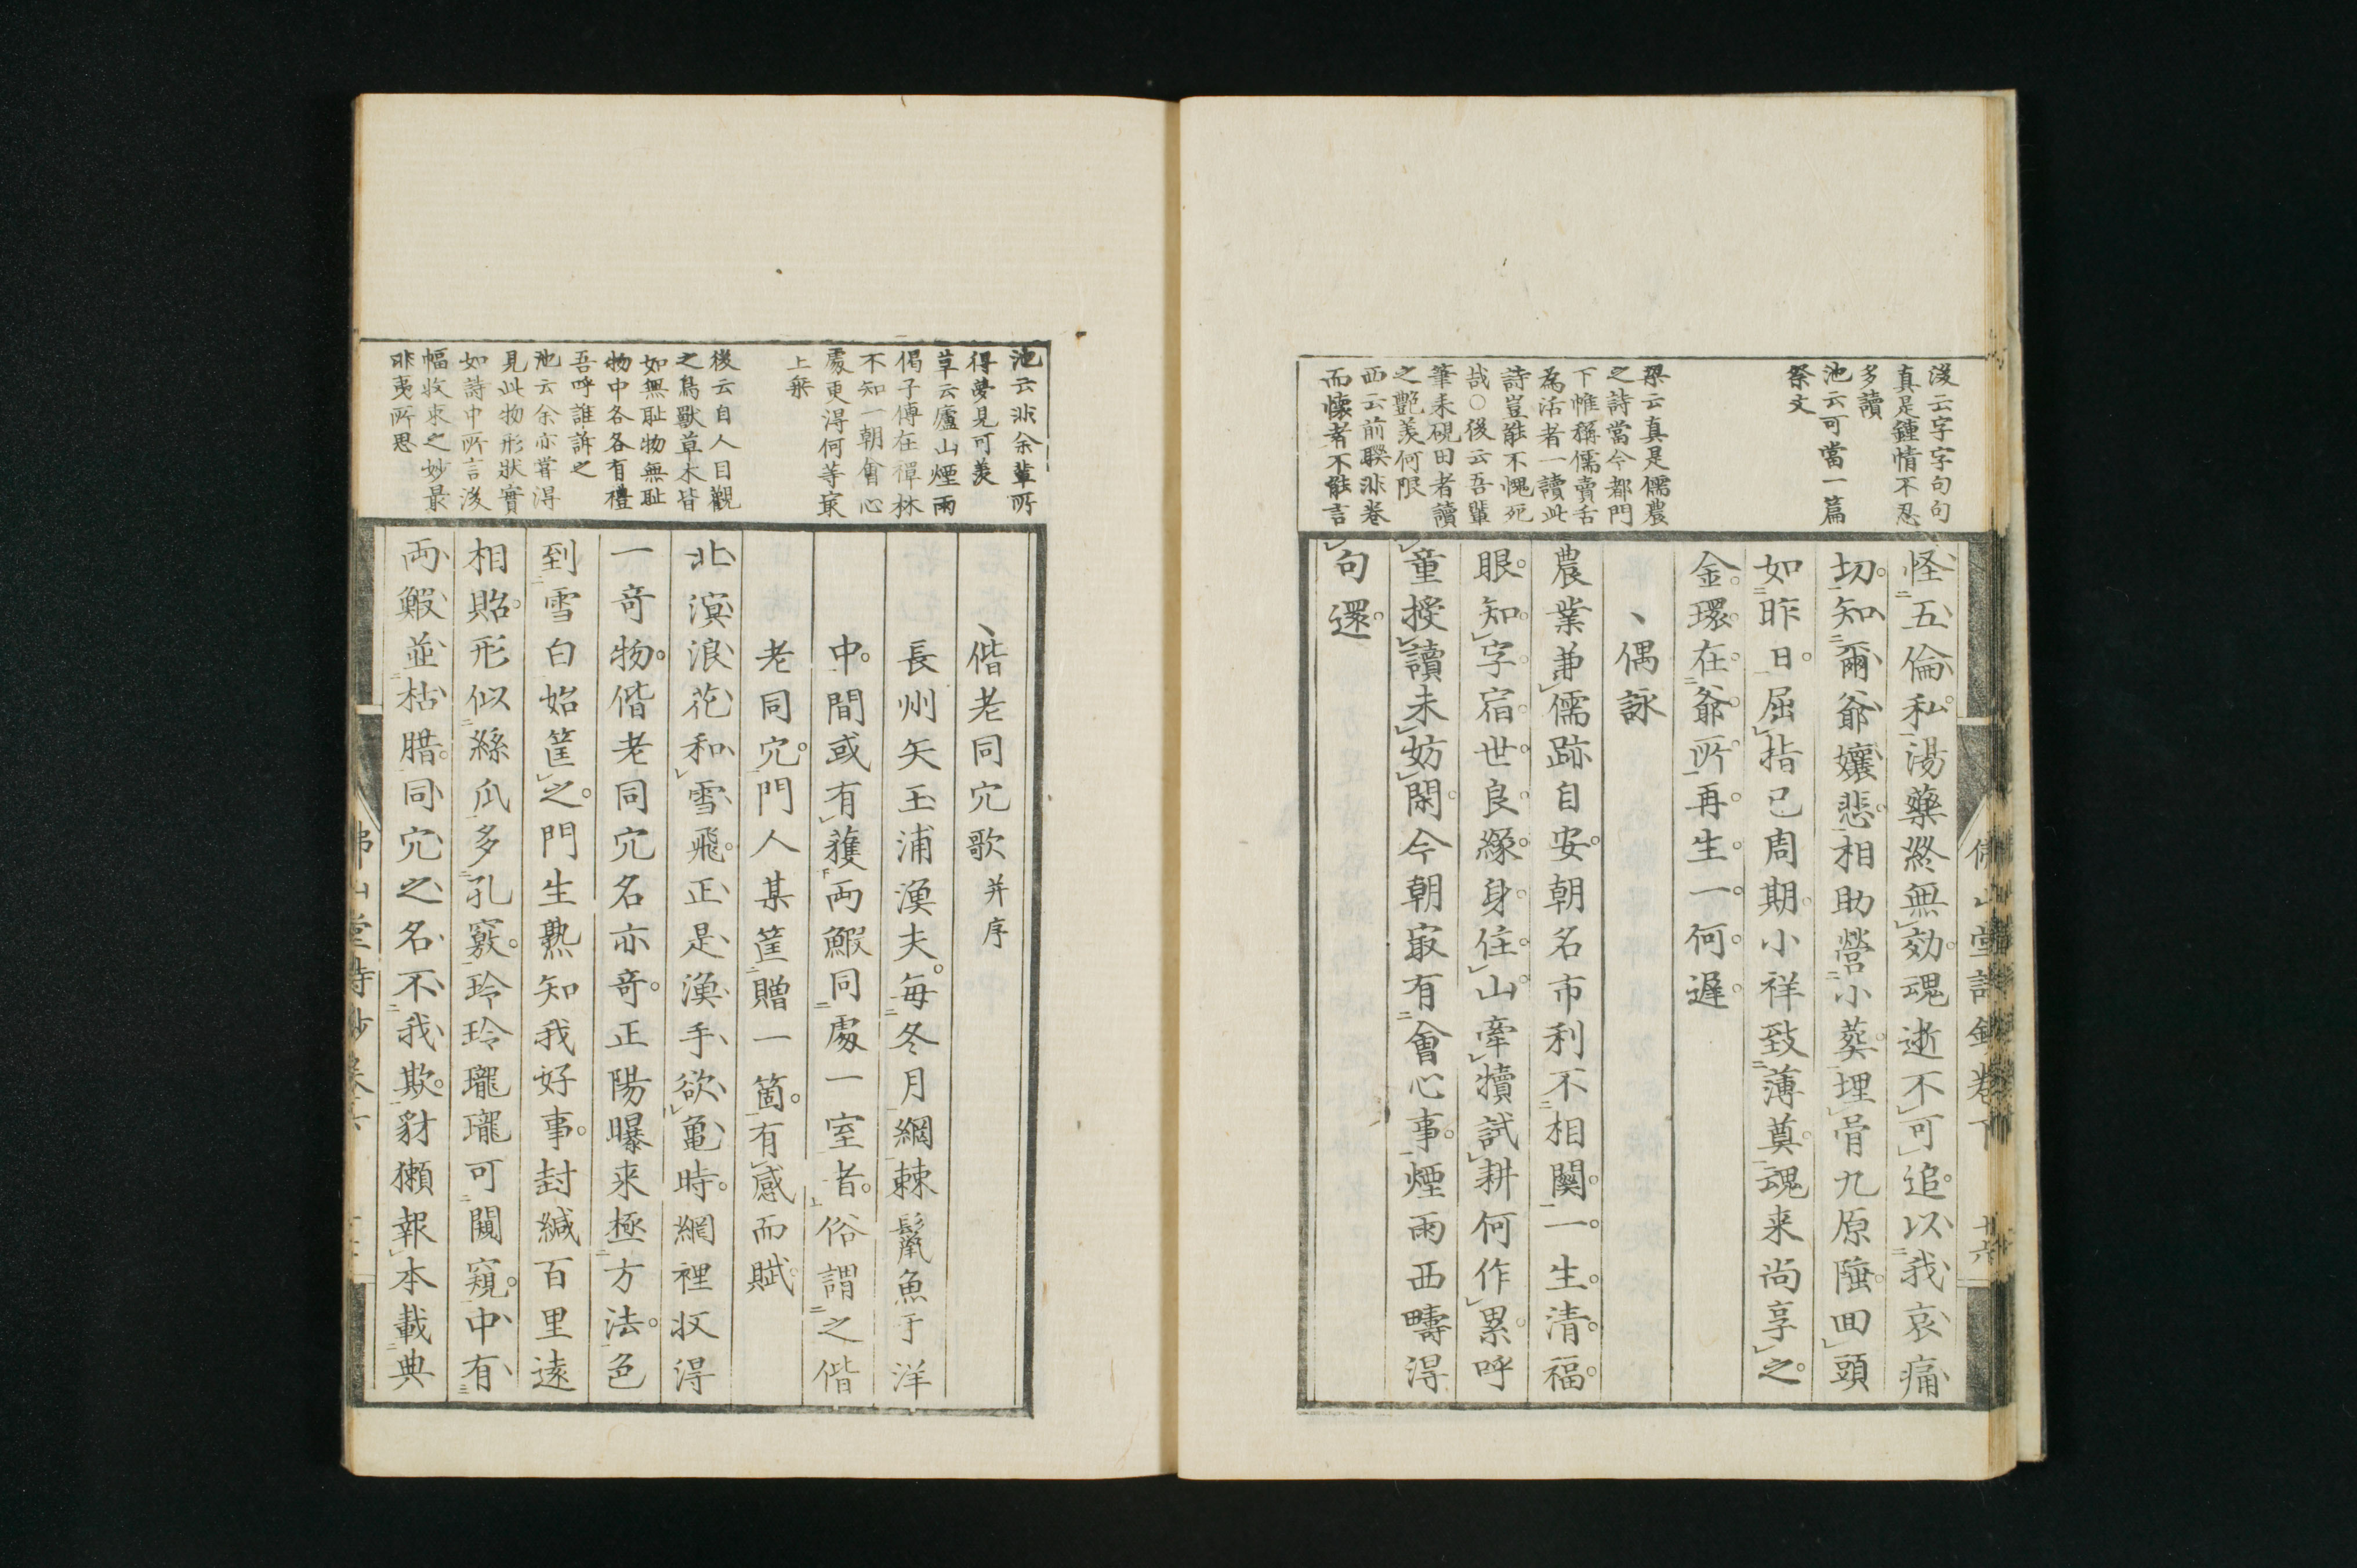 後云字字句句
真是鍾情不忍
多讀
池云可當一篇
祭文
梁云真是儒農
之詩當今都門
下惟稱儒賣舌
為活者一讀此
詩豈能不愧死
哉○後云吾輩
筆耒硯田者讀
之艷羨何限
西云前聯非卷
而懷者不能言
怪五倫私湯藥終無効魂逝不可追以我哀痛
切知爾爺孃悲相助營小葬埋骨九原陲回頭
如昨日屈指已周期小祥致薄奠魂来尚享之
金環在爺所再生一何遲
偶詠
農業兼儒跡自安朝名市利不相關一生清福
眼知字宿世良緣身住山牽犢試耕何作累呼
童授讀未妨閑今朝寂有會心事煙雨西疇得
句還
池云非余輩所
得夢見可羨
草云廬山煙雨
偈子傳在禪林
不知一朝會心
處更得何等寂
上乗
後云自人目觀
之鳥獸草木皆
如無耻物無耻
物中各各有禮
吾呼誰訴之
池云余亦嘗得
見此物形狀實
如詩中所言後
幅收束之妙最
非夷所思
偕老同穴歌并序
長州矢玉浦漁夫毎冬月網棘鬣魚于洋
中間或有獲両鰕同處一室者俗謂之偕
老同穴門人某筐贈一箇有感而賦
北溟浪花和雪飛正是漁手欲亀時網裡収得
一竒物偕老同穴名亦竒正陽曝来極方法色
到雪白始筐之門生熟知我好事封緘百里逺
相貽形似絲瓜多孔竅玲玲瓏瓏可闚窺中有
両鰕並枯腊同穴之名不我欺豺獺報本載典